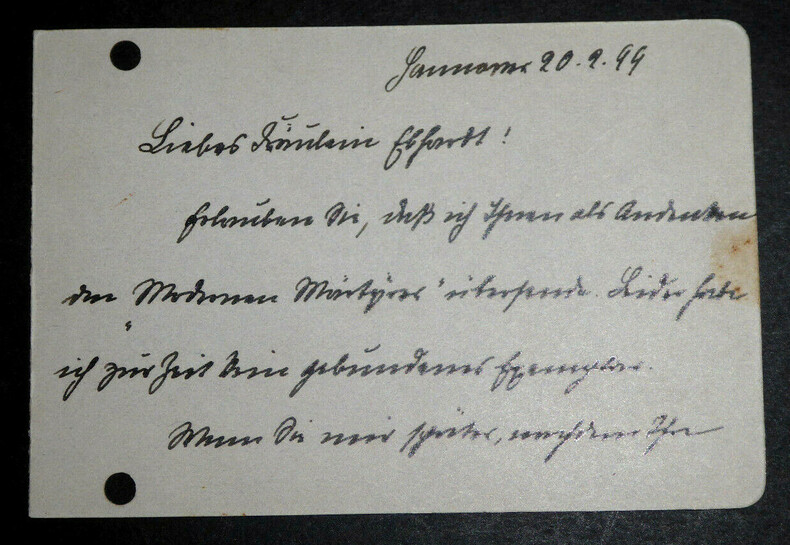 Hannover 20.2.99
Liebes Fräulein Ebhardt!
Erlauben Sie, daß ich Ihnen als Andenken
den „Modernen Märtyrer" übersende. Leider habe
ich zur Zeit kein gebundenes Exemplar.
Wenn Sie mir später, nachdem Ihre